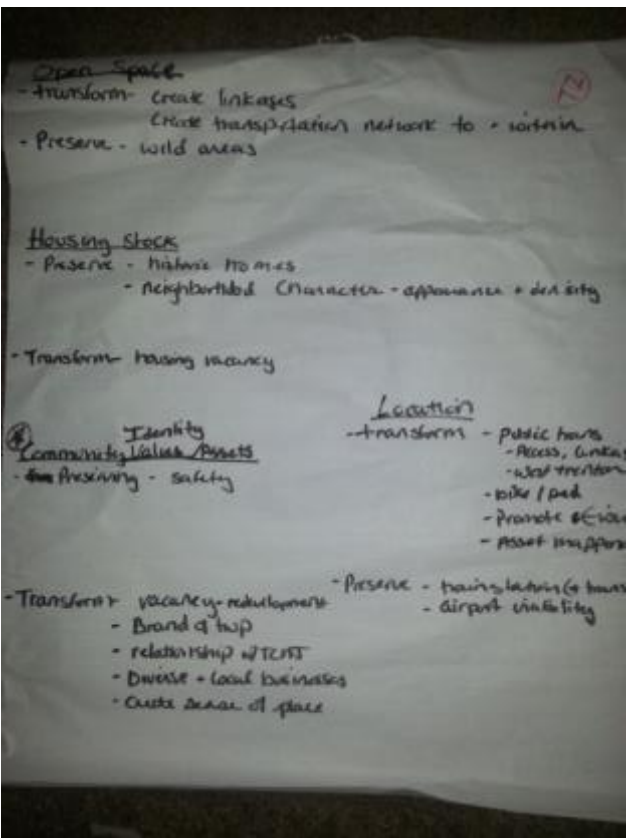 Open Space
- transform - create linkages
Create transportation network to + within
- Preserve - wild areas
Housing Stock
- Preserve - historic homes
- neighborhood character - appearance + density
- Transform - housing vacancy
Identity
Community Values /Assets
- Preserving - safety
- Transform - vacancy - redevelopment
- Brand of twp
- relationship w/ TCNJ
- Diverse + local businesses
- Create sense of place
Location
- transform - public trans
- Access, linkag
- West Trenton
- bike / ped
- Promote
- Asset mapping
- Preserve -
- airport viability